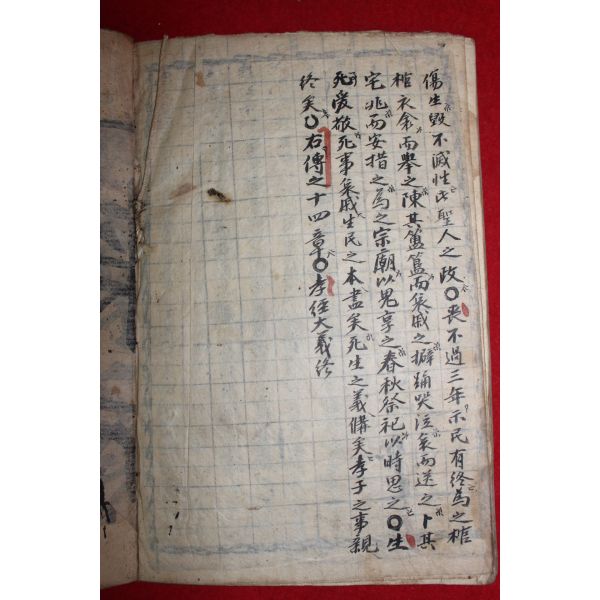 傷生毀不滅性此聖人之政〇喪不過三年示民有終為之棺
椁衣衾而擧之陳其簠簋而哀戚之擗踊哭泣哀而送之卜其
宅兆而安措之為之宗廟以鬼享之春秋祭祀以時思之〇生
死愛敬死事哀戚生民之本盡矣死生之義備矣孝子之事親
終矣〇右傳之十四章〇孝經大義終